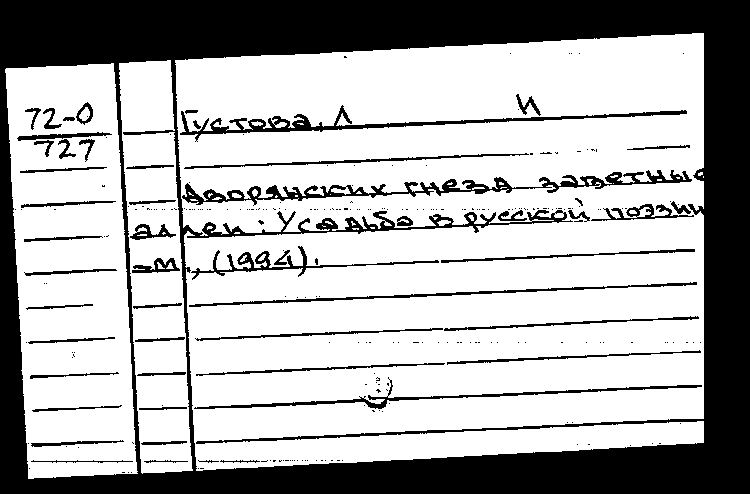 72-0
727
Густова, Л И
Дворянских гнезд заветные
аллеи: Усадьба в русской поэзии
-М., (1994).